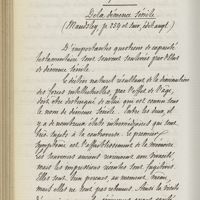 De la démence sénile
(Maudsley p. 239 et suiv., ed. angl.)
D'importantes questions de capacité
testamentaire sont souvent soulevées par l'état
de démence sénile.
Le déclin naturel résultant de la diminution
des forces intellectuelles, par l'effet de l'âge,
doit être distingué de celui qui est connu sous
le nom de démence sénile. Entre les deux, il
y a de nombreux états intermédiaires qui sont
très sujets à la controverse. Le premier
symptôme est l'affaiblissement de la mémoire
les souvenirs anciens revenant avec vivacité,
mais les impressions récentes sont fugitives.
Elles sont, peu posant, un moment
mais elles ne sont pas retenues. Mais les récits